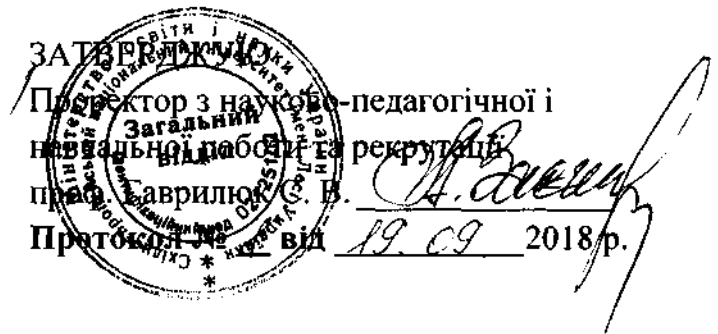 ЗАТВЕРДЖУЮ
Проректор з науково-педагогічної і
навчальної роботи та рекрутації
проф. Гаврилюк С. В.
Протокол № від 19. 09 2018 р.
Загальний
відділ